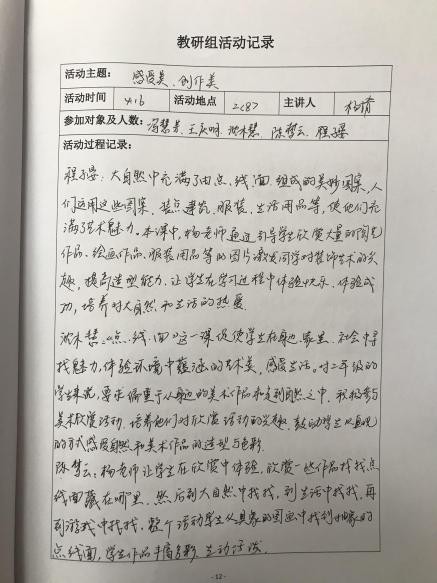 教研组活动记录
活动主题： 感受美、创作美
活动时间 4.16 活动地点 2C87 主讲人 杨倩
参加对象及人数： 冯慧芳、王庆明、沈木慧、陈梦云、程子璎
活动过程记录：
程子璎：大自然中充满了由点、线、面组成的美妙图案，人
们运用这些图案，装点建筑、服装、生活用品等，使他们充
满了艺术魅力。本课中，杨老师通过引导学生欣赏大量的陶艺
作品、绘画作品、服装用品等的图片激发同学对装饰艺术的兴
趣，提高造型能力，让学生在学习过程中体验快乐、体验成
功，培养对大自然和生活的热爱。
沈木慧："点、线、面"这一课促使学生在身边、家里、社会中寻
找魅力，体验环境中蕴涵的艺术美，感受生活。对二年级的
学生来说，要求偏重于从身边的美术作品和走到自然之中，积极参与
美术欣赏活动，培养他们对欣赏活动的兴趣，鼓励学生以直观
的方式感受自然和美术作品的造型与色彩。
陈梦云：杨老师让学生在欣赏中体验，欣赏一些作品找找点
线面藏在哪里，然后到大自然中找找，到生活中找找，再
到游戏中找找，整个活动学生从具象的图画中找到抽象的
点线面，学生作品丰富多彩、生动活泼。
- 12 -